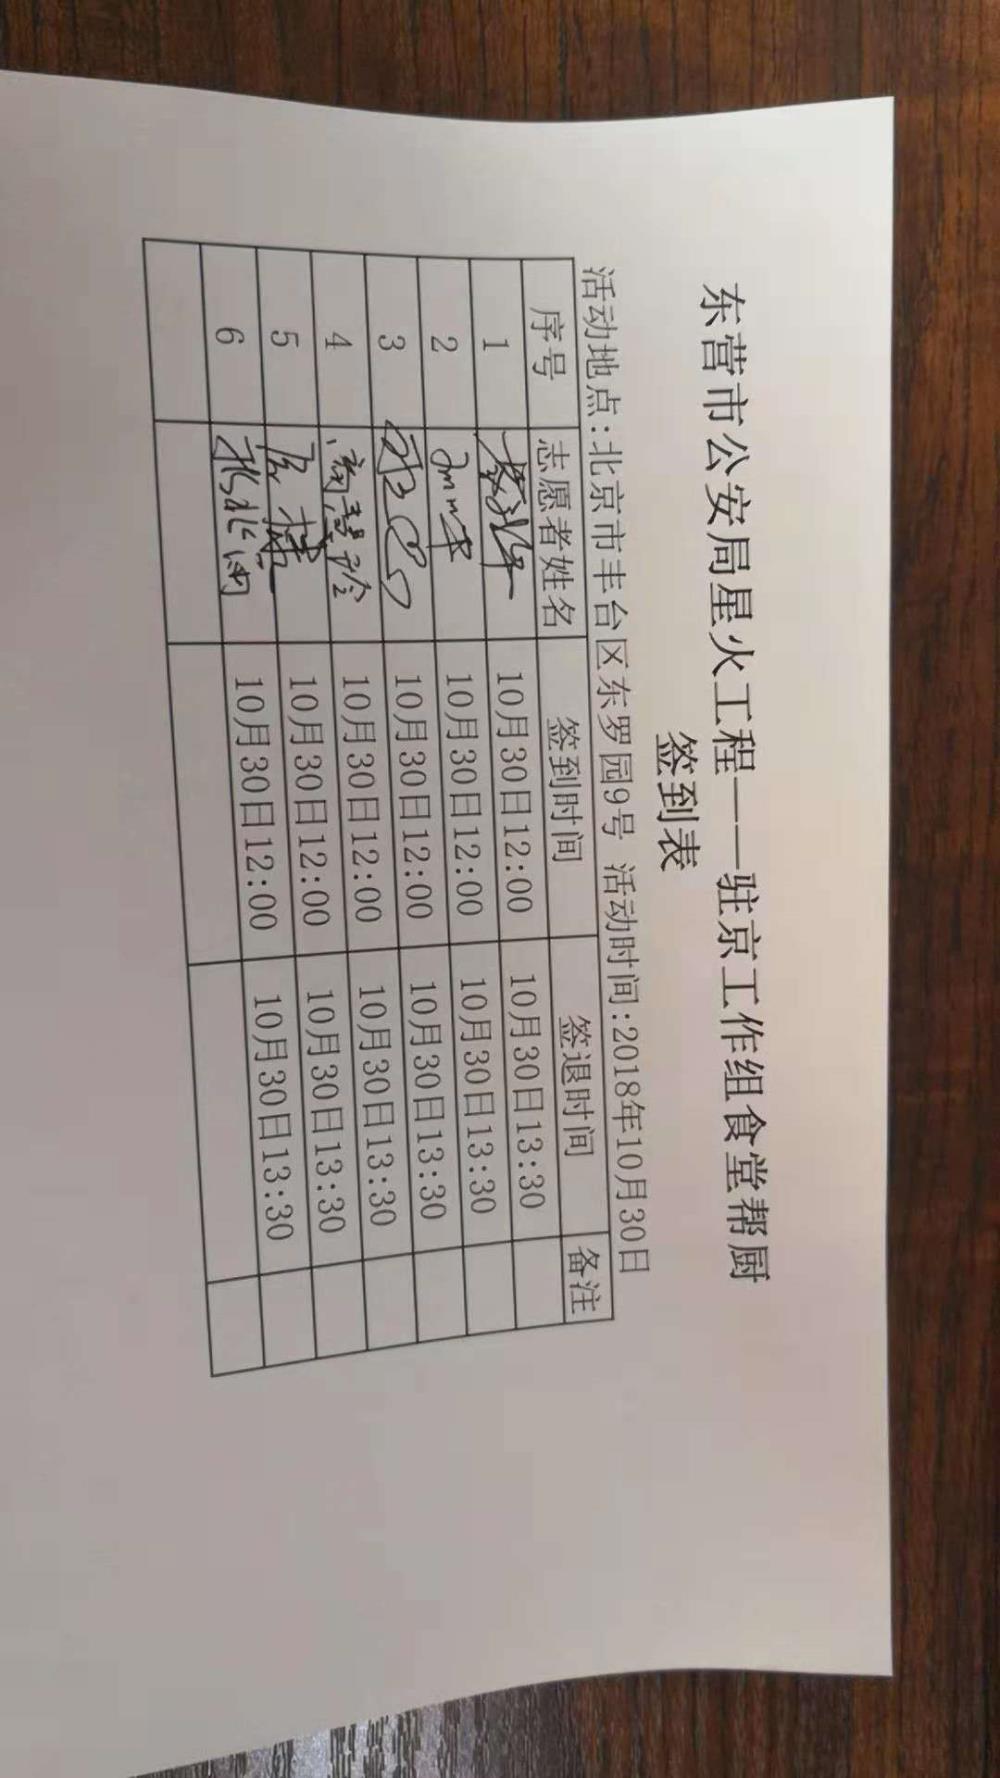 东营市公安局星火工程——驻京工作组食堂帮厨
签到表
活动地点:北京市丰台区东罗园9号 活动时间:2018年10月30日
序号 志愿者姓名 签到时间 签退时间 备注
1 10月30日12:00 10月30日13:30
2 10月30日12:00 10月30日13:30
3 10月30日12:00 10月30日13:30
4 10月30日12:00 10月30日13:30
5 10月30日12:00 10月30日13:30
6 10月30日12:00 10月30日13:30